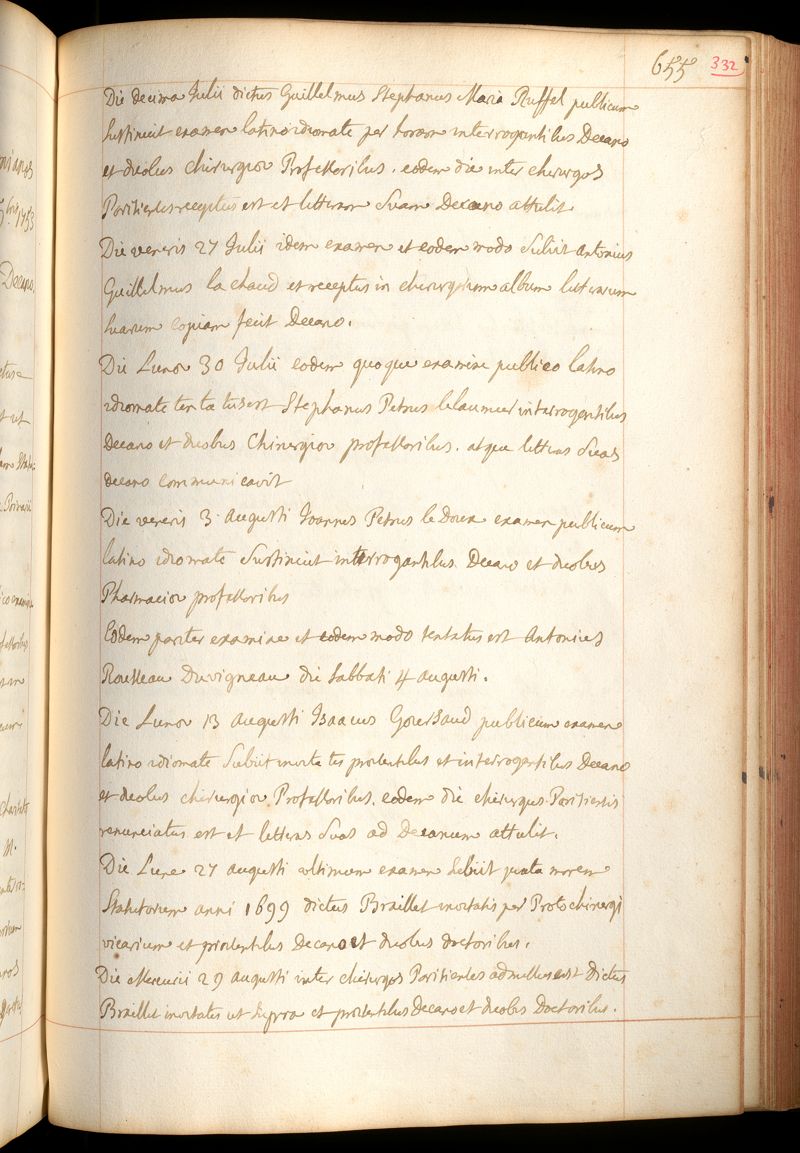 655 332
Die decima Julii dictus Guillelmus Stephanus Maria Ruffel publicum
sustinuit examen latino idiomate per horam interrogantibus Decano
et duobus chirurgiae Professoribus. eodem die inter chirurgos
Parisienses receptus est et litteram suam Decano attulit
Die veneris 27 Julii idem examen et eodem modo subiit Antonius
Guillelmus la chaud et receptus in chirurgorum album litterarum
suarum copiam fecit Decano.
Die Lunae 30 Julii eodem quoque examine publico latino
idiomate tentatus est Stephanus Petrus lelaumier interrogantibus
Decano et duobus Chirurgiae professoribus. atque litteras suas
decano communicavit
Die veneris 3 Augusti Joannes Petrus le Doux examen publicum
latino idiomate sustinuit interrogantibus Decano et duobus
Pharmaciae professoribus
Eodem pariter examine et eodem modo tentatus est Antonius
Rousseau Duvigneau die sabbati 4 augusti.
Die Lunae 13 Augusti Isaacus Goursaud publicum examen
latino idiomate subiit invitatis praesentibus et interrogantibus Decano
et duobus chirurgiae Professoribus. eodem die chirurgus Parisiensis
renunciatus est et litteras suas ad Decanum attulit.
Die Lune 27 augusti ultimum examen subiit juxta morem
Statutorum anni 1699 dictus Braillet invitatis per Protochirurgi
vicarium et praesentibus Decano et duobus doctoribus.
Die Mercurii 29 augusti inter chirurgos Parisienses admissus est dictus
Braillet invitatis ut supra et praesentibus Decano et duobus Doctoribus.